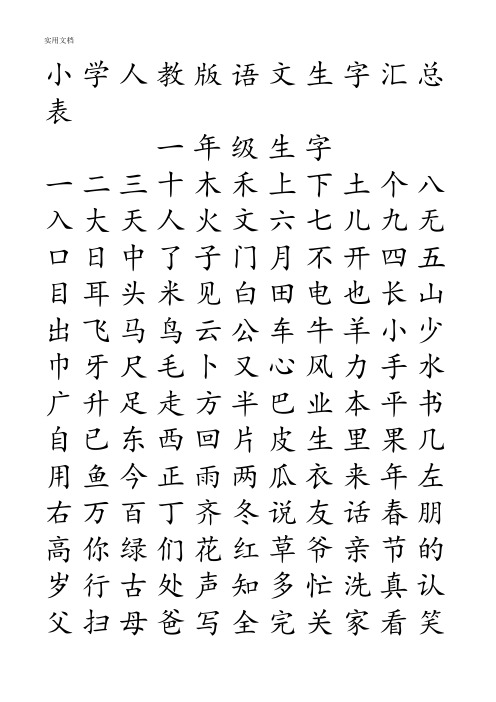 实用文档
小学人教版语文生字汇总
表
一年级生字
一二三十木禾上下土个八
入大天人火文六七儿九无
口日中了子门月不开四五
目耳头米见白田电也长山
出飞马鸟云公车牛羊小少
巾牙尺毛卜又心风力手水
广升足走方半巴业本平书
自已东西回片皮生里果几
用鱼今正雨两瓜衣来年左
右万百丁齐冬说友话春朋
高你绿们花红草爷亲节的
岁行古处声知多忙洗真认
父扫母爸写全完关家看笑